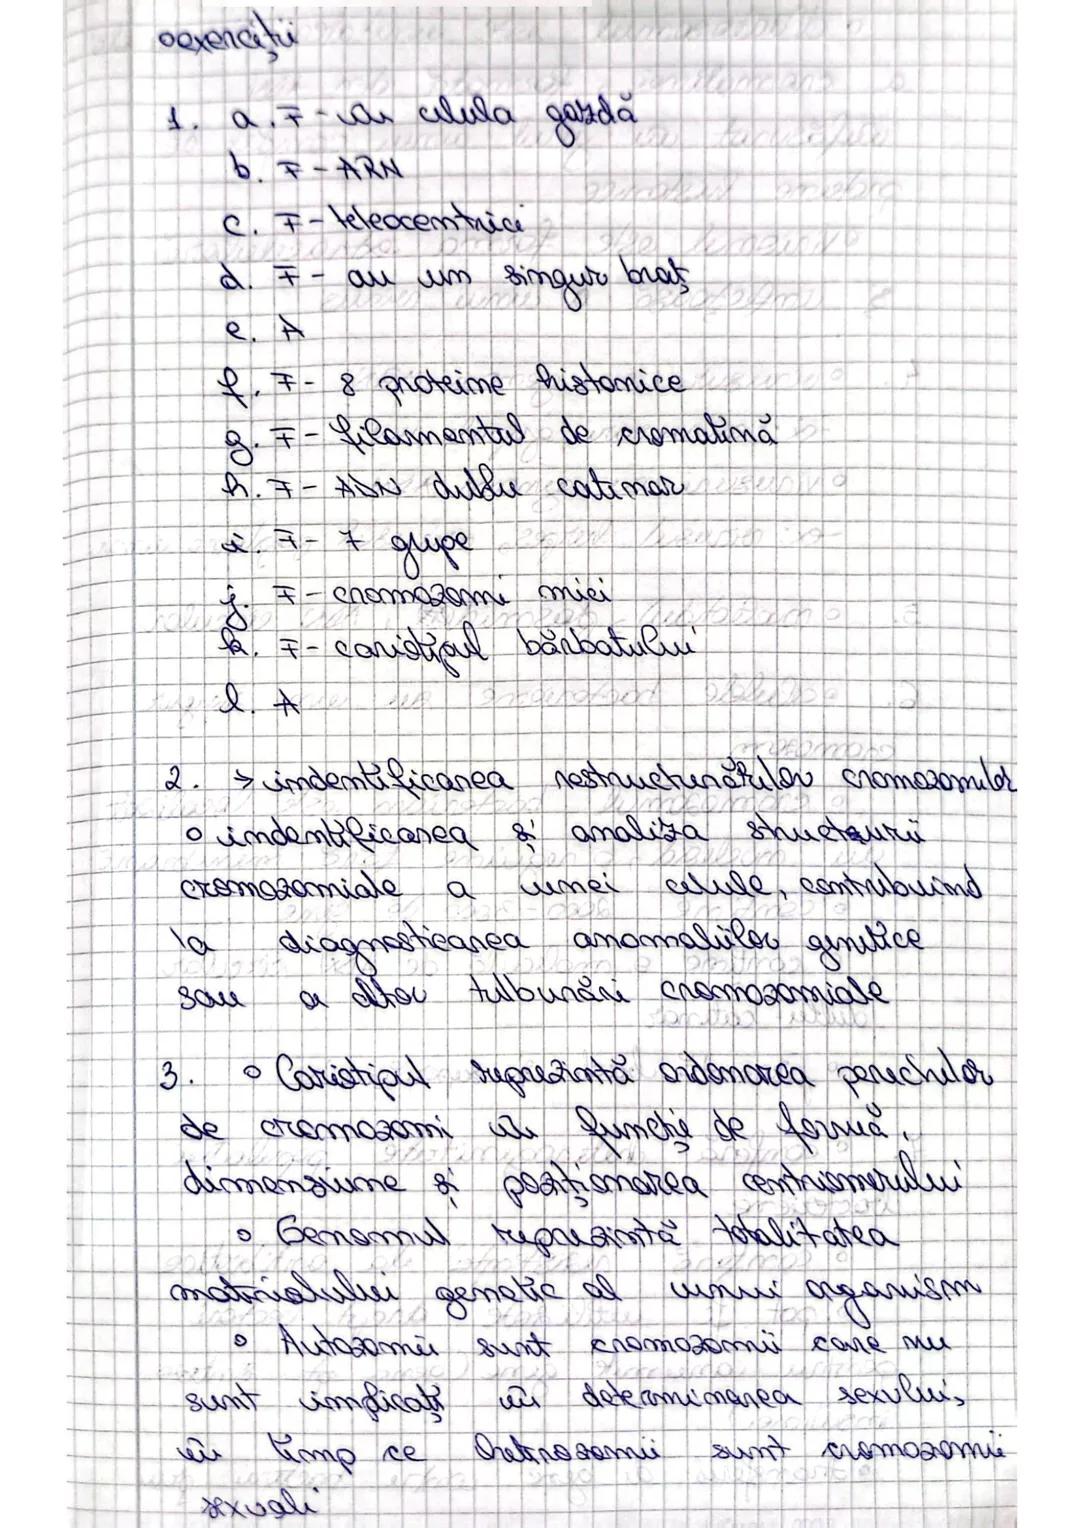 oexerciții
1. a. F - în celula gazdă
b. F - ARN
c. F - teleocentrici
d. F - au un singur braț
e. A
f. F - 8 proteine histonice
g. F - filamentul de cromatină
h. F - ADN dublu catenar
i. F - 7 grupe
j. F - cromozomi mici
k. F - cariotipul bărbatului
l. A
2. → indentificarea restructurărilor cromozomilor
o indentificarea și analiza structurii
cromozomiale a unei celule, contribuind
la diagnosticarea anomaliilor genetice
sau a altor tulburări cromozomiale
3. o Cariotipul reprezintă ordonarea perechilor
de cromozomi în funcție de formă,
dimensiune și poziționarea centriomerului
o Genomul reprezintă totalitatea
materialului genetic al unui organism
o Autozomii sunt cromozomii care nu
sunt implicați în determinarea sexului,
în timp ce heterozomii sunt cromozomii
sexuali